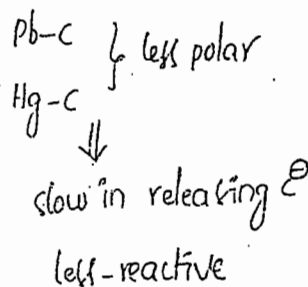 Pb-C } less polar
Hg-C
⇓
slow in releasing C⊖
less-reactive